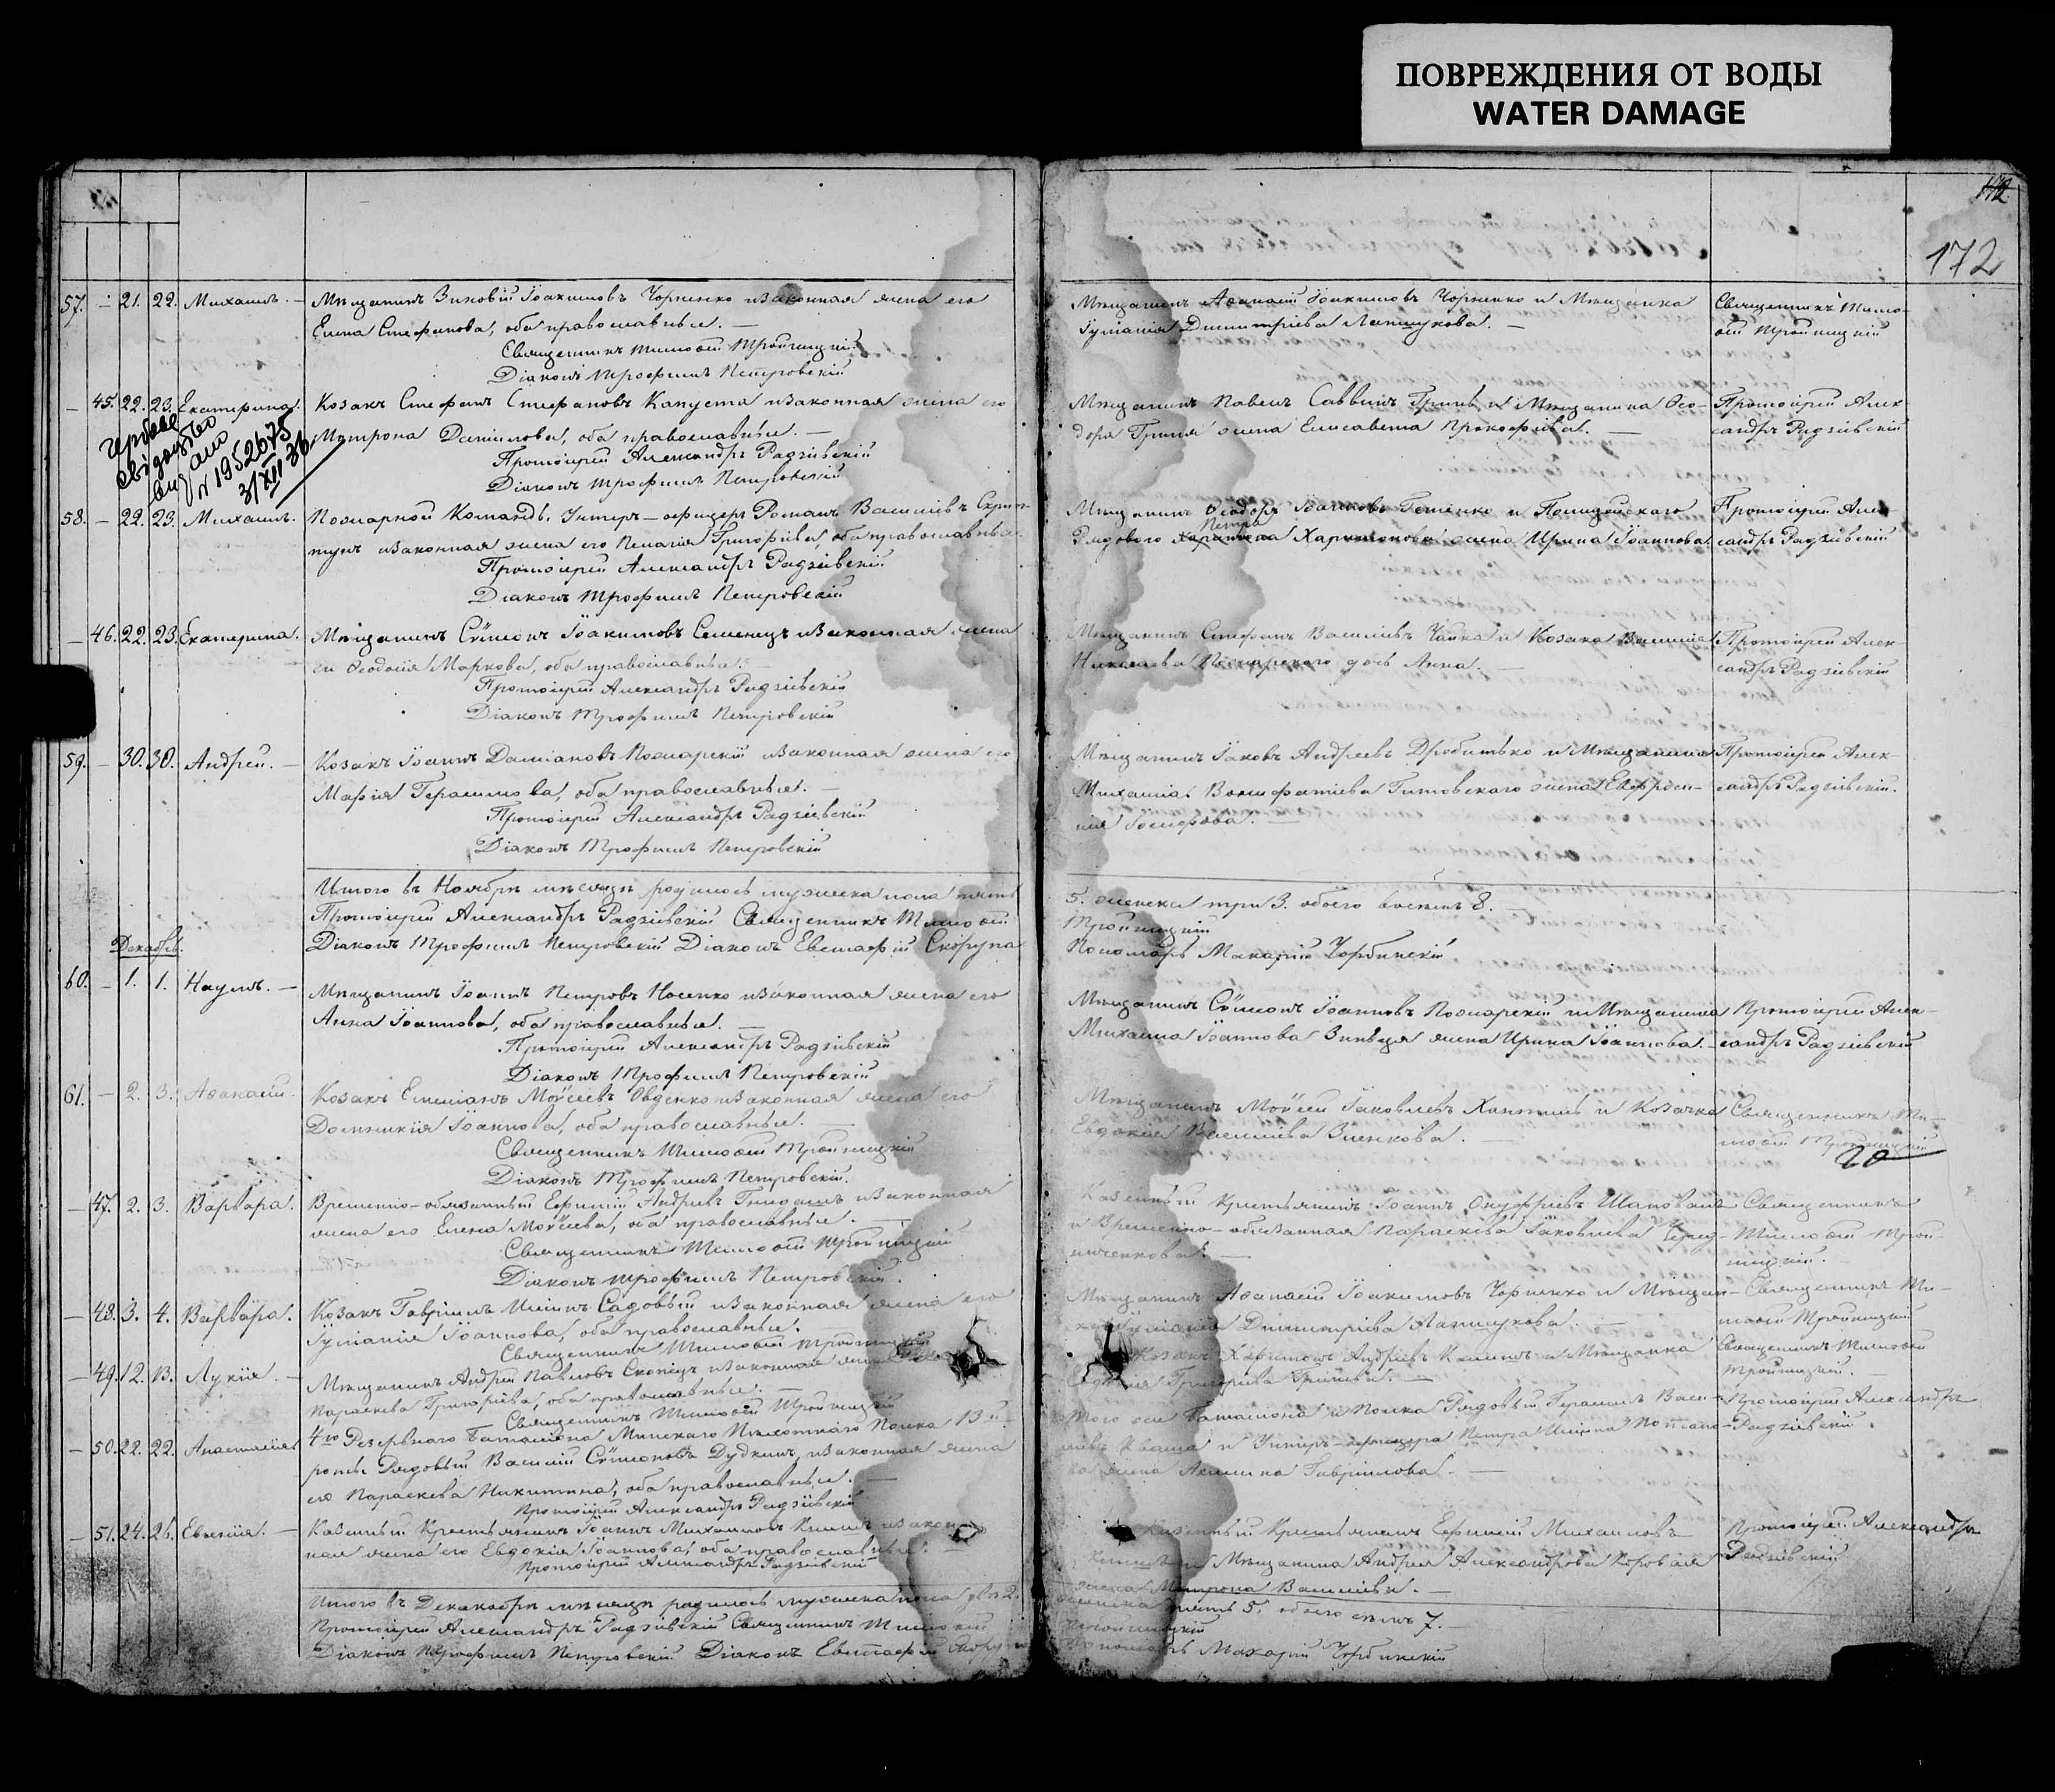 ПОВРЕЖДЕНИЯ ОТ ВОДЫ
WATER DAMAGE
172
172
57. — 21. 22. Михаилъ. — Мѣщанинъ Зиновій Іоакимовъ Чорненко и законная жена его
Елена Стефанова, оба православные. —
Священникъ Тимоѳей Тройницкій
Діаконъ Трофимъ Петровскій
Мѣщанинъ Аѳанасій Іоакимовъ Чорненко и Мѣщанка
Іуліанія Димитріева Лапшукова. —
Священникъ Тимо-
ѳей Тройницкій
— 45. 22. 23. Екатерина. Козакъ Стефанъ Стефановъ Капуста и законная жена его
Матрона Даніилова, оба православные. —
Протоіерей Александръ Радзіевскій
Діаконъ Трофимъ Петровскій
Мѣщанинъ Павелъ Саввинъ Гринь и Мѣщанина Ѳео-
дора Гриня жена Елисавета Прокофіева. —
Протоіерей Алек-
сандръ Радзіевскій
свідоцтво
видано
№ 1952675
3/XII 36
58. — 22. 23. Михаилъ. Пожарной Команды Унтеръ-офицеръ Романъ Василіевъ
и законная жена его Пелагія Григоріева, оба православные.
Протоіерей Александръ Радзіевскій
Діаконъ Трофимъ Петровскій
Мѣщанинъ Ѳеодоръ Іоанновъ и Полицейскаго
Петра
Рядового Харитонова жена Ирина Іоаннова.
Протоіерей Алек-
сандръ Радзіевскій
— 46. 22. 23. Екатерина. Мѣщанинъ Сѵмеонъ Іоакимовъ Семенецъ и законная жена
его Ѳеодосія Маркова, оба православные. —
Протоіерей Александръ Радзіевскій
Діаконъ Трофимъ Петровскій
Мѣщанинъ Стефанъ Василіевъ Чайка и Козака Василія
Николаева Пожарского дочь Анна. —
Протоіерей Алек-
сандръ Радзіевскій
59. — 30. 30. Андрей. — Козакъ Іоаннъ Даміановъ Пожарскій и законная жена его
Марія Герасимова, оба православные. —
Протоіерей Александръ Радзіевскій
Діаконъ Трофимъ Петровскій
Мѣщанинъ Іаковъ Андреевъ Дробитько и Мѣщанина
Михаила Вонифатіева Гитовскаго жена Евфроси-
нія Іосифова. —
Протоіерей Алек-
сандръ Радзіевскій.
Итого въ Ноябрѣ мѣсяцѣ родилось мужеска пола пять
5. женска три 3. обоего восемь 8. —
Протоіерей Александръ Радзіевскій Священникъ Тимоѳей
Тройницкій
Діаконъ Трофимъ Петровскій Діаконъ Евстафій Скорупа
Пономарь Макарій Чорбинскій
Декабрь.
60. — 1. 1. Наумъ. — Мѣщанинъ Іоаннъ Петровъ Носенко и законная жена его
Анна Іоаннова, оба православные. —
Протоіерей Александръ Радзіевскій
Діаконъ Трофимъ Петровскій
Мѣщанинъ Сѵмеонъ Іоанновъ Пожарскій и Мѣщанина
Михаила Іоаннова Зинвця жена Ирина Іоаннова. —
Протоіерей Алек-
сандръ Радзіевскій
61. — 2. 3. Аѳанасій. Козакъ Емиліанъ Моѵсеевъ Овденко и законная жена его
Домникія Іоаннова, оба православные. —
Священникъ Тимоѳей Тройницкій
Діаконъ Трофимъ Петровскій.
Мѣщанинъ Моѵсей Іаковлевъ и Козачка
Евдокія Василіева Зленкова. —
Священникъ Ти-
моѳей Тройницкій
20
— 47. 2. 3. Варвара. Временно-обязанный Ефимій Андреевъ и законная
жена его Елена Моѵсеева, оба православные. —
Священникъ Тимоѳей Тройницкій
Діаконъ Трофимъ Петровскій.
Казенный Крестьянинъ Іоаннъ Онуфріевъ Шаповалъ
и Временно-обязанная Параскева Іаковлева Черед-
ниченкова. —
Священникъ
Тимоѳей Трой-
ницкій.
— 48. 3. 4. Варвара. Козакъ Гавріилъ Ильинъ Садовый и законная жена его
Іуліанія Іоаннова, оба православные.
Священникъ Тимоѳей Тройницкій
Мѣщанинъ Аѳанасій Іоакимовъ Чорненко и Мѣщан-
ка Іуліанія Димитріева Лапшукова. —
Священникъ Ти-
моѳей Тройницкій
— 49. 12. 13. Лукія. — Мѣщанинъ Андрей Павловъ Скопецъ и законная жена
Параскева Григоріева, оба православные. —
Священникъ Тимоѳей Тройницкій
Козакъ Харитонъ Андреевъ и Мѣщанка
Григоріева
Священникъ Тимоѳей
Тройницкій. —
— 50. 22. 22. Анастасія 4го Резервнаго Баталіона Минскаго Пѣхотнаго Полка 13й
роты Рядовый Василій Сѵмеоновъ Дудкинъ, и законная жена
его Параскева Никитина, оба православные. —
Протоіерей Александръ Радзіевскій
Того же Баталіона и Полка Рядовый Герасимъ Васи-
ліевъ Кваша и Унтеръ-офицера Петра Ильина
жена Гавріилова. —
Протоіерей Александръ
Радзіевскій.
— 51. 24. 26. Евгенія. — Казенный Крестьянинъ Іоаннъ Михаиловъ и закон-
ная жена его Евдокія Іоаннова, оба православные. —
Протоіерей Александръ Радзіевскій
Казенный Крестьянинъ Ефимій Михаиловъ
и Мѣщанина Андрея Александрова
жена Матрона Василіева. —
Протоіерей Александръ
Радзіевскій
Итого въ Декабрѣ мѣсяцѣ родилось мужеска пола два 2.
женска пять 5. обоего семь 7. —
Протоіерей Александръ Радзіевскій Священникъ Тимоѳей
Тройницкій
Діаконъ Трофимъ Петровскій Діаконъ Евстафій Скорупа
Пономарь Макарій Чорбинскій